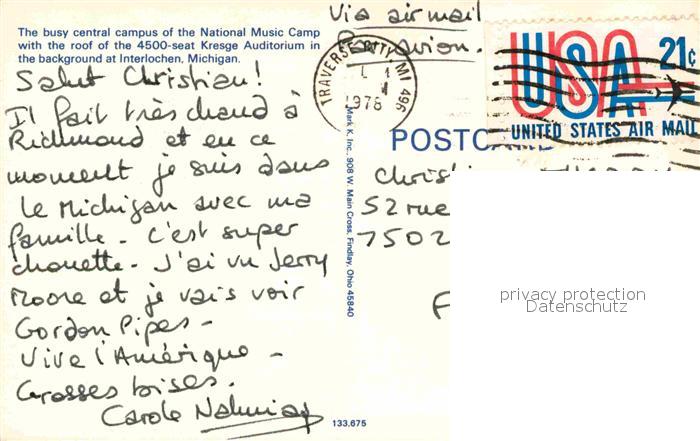 The busy central campus of the National Music Camp
with the roof of the 4500-seat Kresge Auditorium in
the background at Interlochen, Michigan.
Salut Christian!
Il fait très chaud à
Richmond et en ce
moment je suis dans
le Michigan avec ma
famille. C'est super
chouette. J'ai vu Jerry
Moore et je vais voir
Gordon Pipes -
Vive l'Amérique -
Grosses bises.
Carole
133,675
Mark K, Inc.: 908 W. Main Cross, Findlay, Ohio 45840
Via air mail
Par avion.
TRAVERSE CITY MI 496
1978
USA 21c
UNITED STATES AIR MAIL
POSTCARD
52 rue
7502
F
privacy protection
Datenschutz